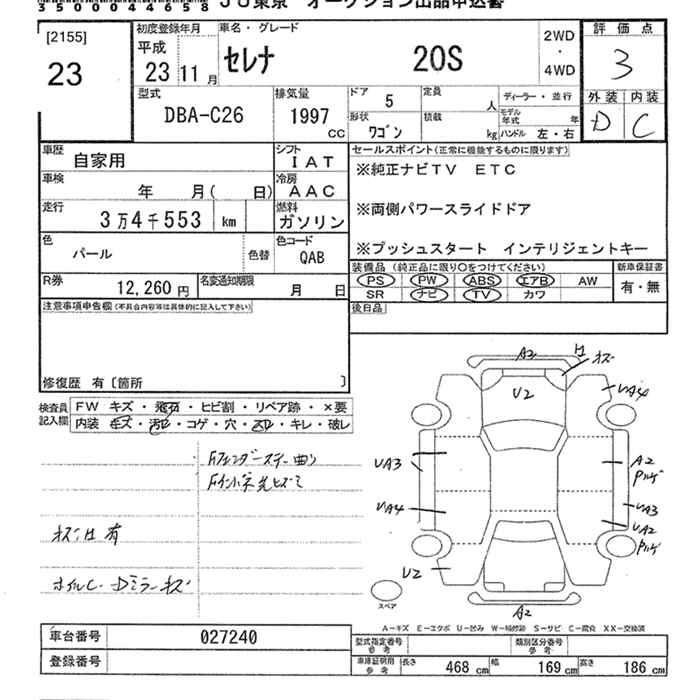 35000444658 JU東京 オークション出品申込書
[2155]
23
初度登録年月
平成
23 11 月
車名・グレード
セレナ 20S
2WD
・
4WD
評価点
3
外装 内装
D C
型式
DBA-C26
排気量
1997
CC
ドア
5
定員
人
形状
ワゴン
積載
kg
ディーラー・並行
モデル年式 年
ハンドル 左・右
車歴
自家用
シフト
IAT
車検
年 月( 日)
冷房
AAC
走行
3万4千553 km
燃料
ガソリン
色
パール
色替
色コード
QAB
R券
12,260 円
名変通知期限
月 日
セールスポイント(正常に機能するものに限ります)
※純正ナビTV ETC
※両側パワースライドドア
※プッシュスタート インテリジェントキー
装備品(純正品に限り○をつけてください)
PS PW ABS エアB AW
SR ナビ TV カワ
新車保証書
有・無
後日品
注意事項申告欄(不具合内容等は具体的に記入して下さい)
修復歴 有[箇所 ]
検査員
記入欄
FW キズ・飛石・ヒビ割・リペア跡・×要
内装 キズ・汚レ・コゲ・穴・スレ・キレ・破レ
Fフェンダーステー曲り
A2
キズ
U2
UA4
UA3
A2
UA4
UA3
UA2
U2
A2
スペア
A-キズ E-エクボ U-凹み W-補修跡 S-サビ C-腐食 XX-交換済
車台番号 027240
登録番号
型式指定番号
参考
類別区分番号
参考
車庫証明用
参考
長さ 468 cm 幅 169 cm 高さ 186 cm